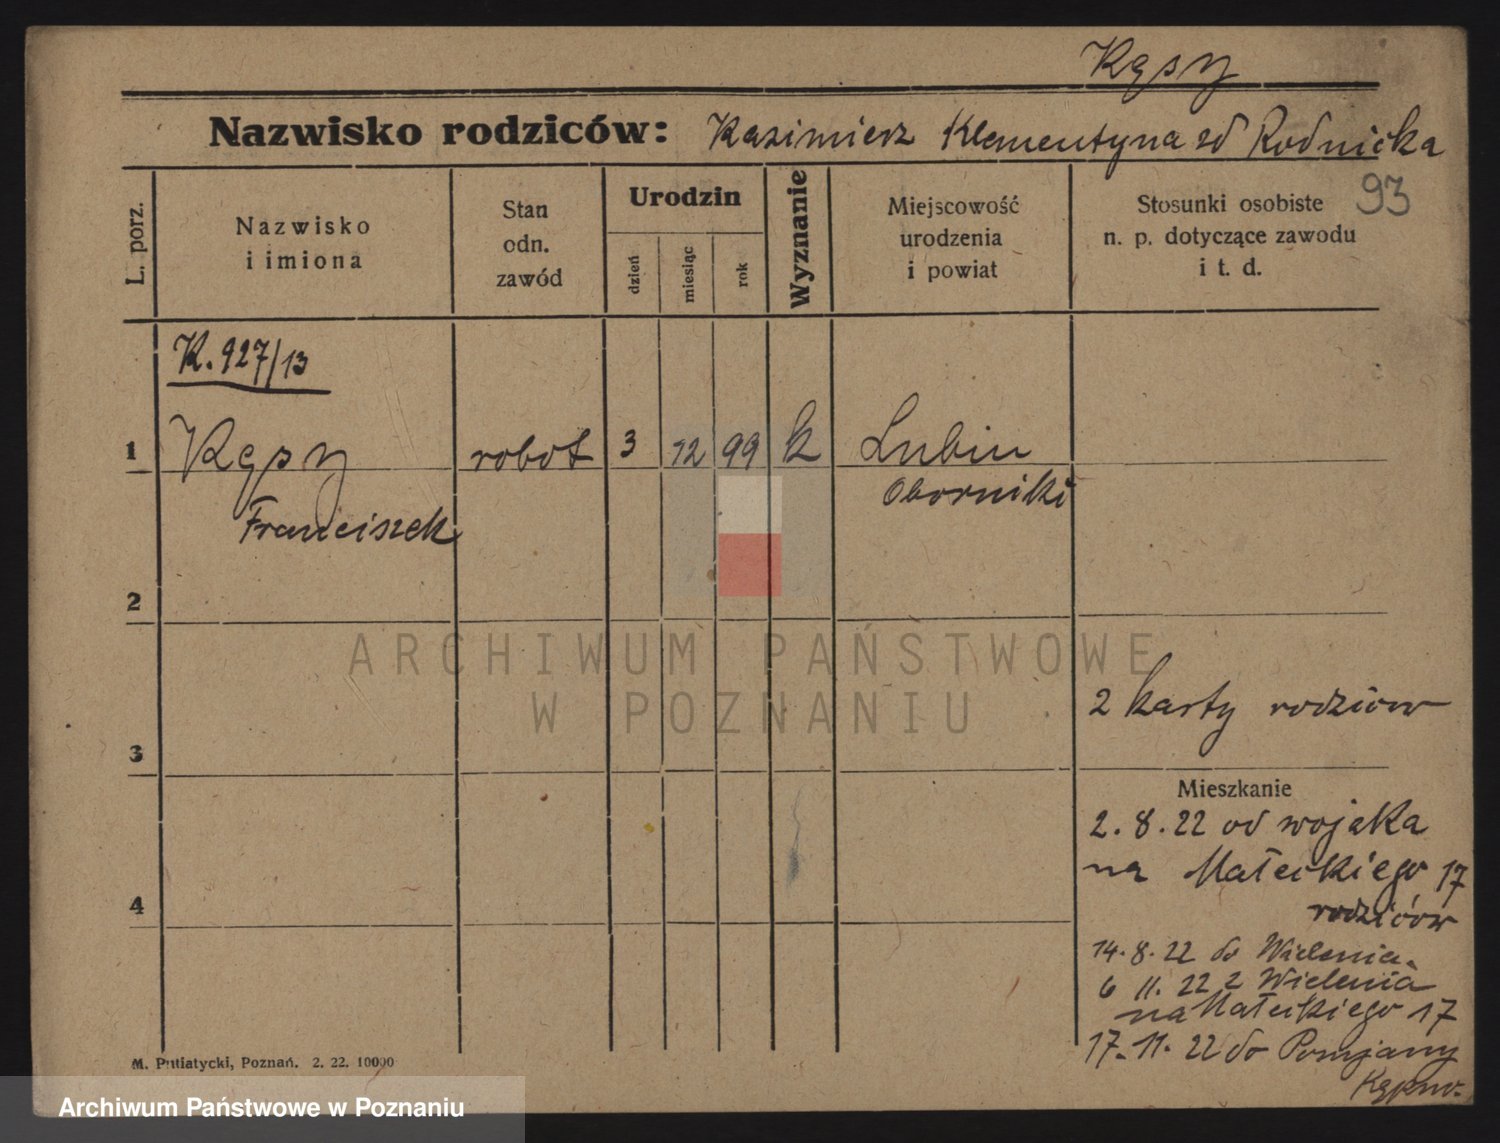 Kęsy
Nazwisko rodziców: Kazimierz Klementyna zd Rodnicka
93
L. porz.
Nazwisko
i imiona
Stan
odn.
zawód
Urodzin
dzień
miesiąc
rok
Wyznanie
Miejscowość
urodzenia
i powiat
Stosunki osobiste
n. p. dotyczące zawodu
i t. d.
K. 927/13
1 Kęsy robot 3 12 99 k Lubin
Franciszek Oborniki
2
ARCHIWUM PAŃSTWOWE
W POZNANIU
2 karty rodziców
3
Mieszkanie
2. 8. 22 od wojska
na Małeckiego 17
rodziców
4
14. 8. 22 do Wielenia
6 11. 22 z Wielenia
na Małeckiego 17
17. 11. 22 do Pomjany
Kępno.
M. Putiatycki, Poznań. 2. 22. 10000
Archiwum Państwowe w Poznaniu